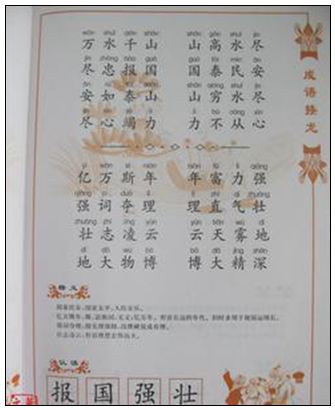 成语接龙
wàn shuǐ qiān shān shān gāo shuǐ jìn
万水千山 山高水尽
jìn zhōng bào guó guó tài mín ān
尽忠报国 国泰民安
ān rú tài shān shān qióng shuǐ jìn
安如泰山 山穷水尽
jìn xīn jié lì lì bù cóng xīn
尽心竭力 力不从心
yì wàn sī nián nián fù lì qiáng
亿万斯年 年富力强
qiǎng cí duó lǐ lǐ zhí qì zhuàng
强词夺理 理直气壮
zhuàng zhì líng yún yún tiān wù dì
壮志凌云 云天雾地
dì dà wù bó bó dà jīng shēn
地大物博 博大精深
释义
国泰民安：国家太平，人民安乐。
认读
报国强壮